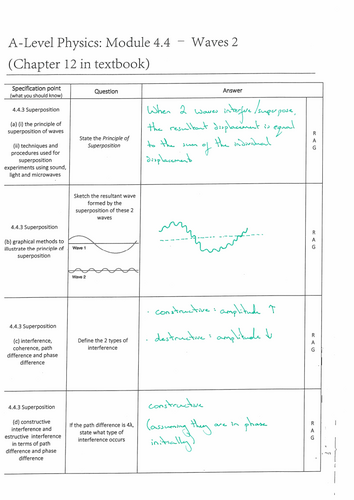 A-Level Physics: Module 4.4 – Waves 2
(Chapter 12 in textbook)
Specification point
(what you should know)
Question
Answer
4.4.3 Superposition
(a) (i) the principle of
superposition of waves
(ii) techniques and
procedures used for
superposition
experiments using sound,
light and microwaves
State the Principle of
Superposition
When 2 waves interfere/superpose,
the resultant displacement is equal
to the sum of the individual
displacement
R
A
G
4.4.3 Superposition
(b) graphical methods to
illustrate the principle of
superposition
Sketch the resultant wave
formed by the
superposition of these 2
waves
Wave 1
Wave 2
R
A
G
4.4.3 Superposition
(c) interference,
coherence, path
difference and phase
difference
Define the 2 types of
interference
· constructive: amplitude ↑
· destructive: amplitude ↓
R
A
G
4.4.3 Superposition
(d) constructive
interference and
estructive interference
in terms of path
difference and phase
difference
If the path difference is 4λ,
state what type of
interference occurs
constructive
(assuming they are in phase
initially)
R
A
G